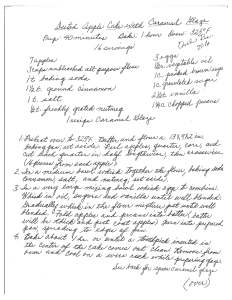 Dutch Apple Cake with Caramel Glaze
Prep 40 minutes Bake 1 hour Oven 325°F
16 servings
3 apples
3 cups unbleached all purpose flour
1 t. baking soda
1 t. ground cinnamon
1 t. salt
t. freshly grated nutmeg
1 recipe Caramel Glaze
3 eggs
vegetable oil
1 c. packed brown sugar
1 c. granulated sugar
2 t. vanilla
c. chopped pecans
1. Preheat oven to 325°F. Butter and flour a 13x9x2 in
baking pan, set aside. Peel apples, quarter, core, and
cut each quarter in half lengthwise, then crosswise
2. In a medium bowl whisk together the flour, baking soda
cinnamon, salt, and nutmeg, set aside.
3. In a very large mixing bowl whisk eggs to combine.
Whisk in oil, sugars and vanilla until well blended.
Gradually whisk in the flour mixture just until well
blended. Fold apples and pecans into batter (batter
will be thick and just coat apples) Turn into prepared
pan, spreading to edges of pan
4. Bake about 1 hr or until a toothpick inserted in
the center of the cake comes out clean. Remove from
oven and cool on a wire rack while preparing glaze
See back for open caramel glaze
(over)